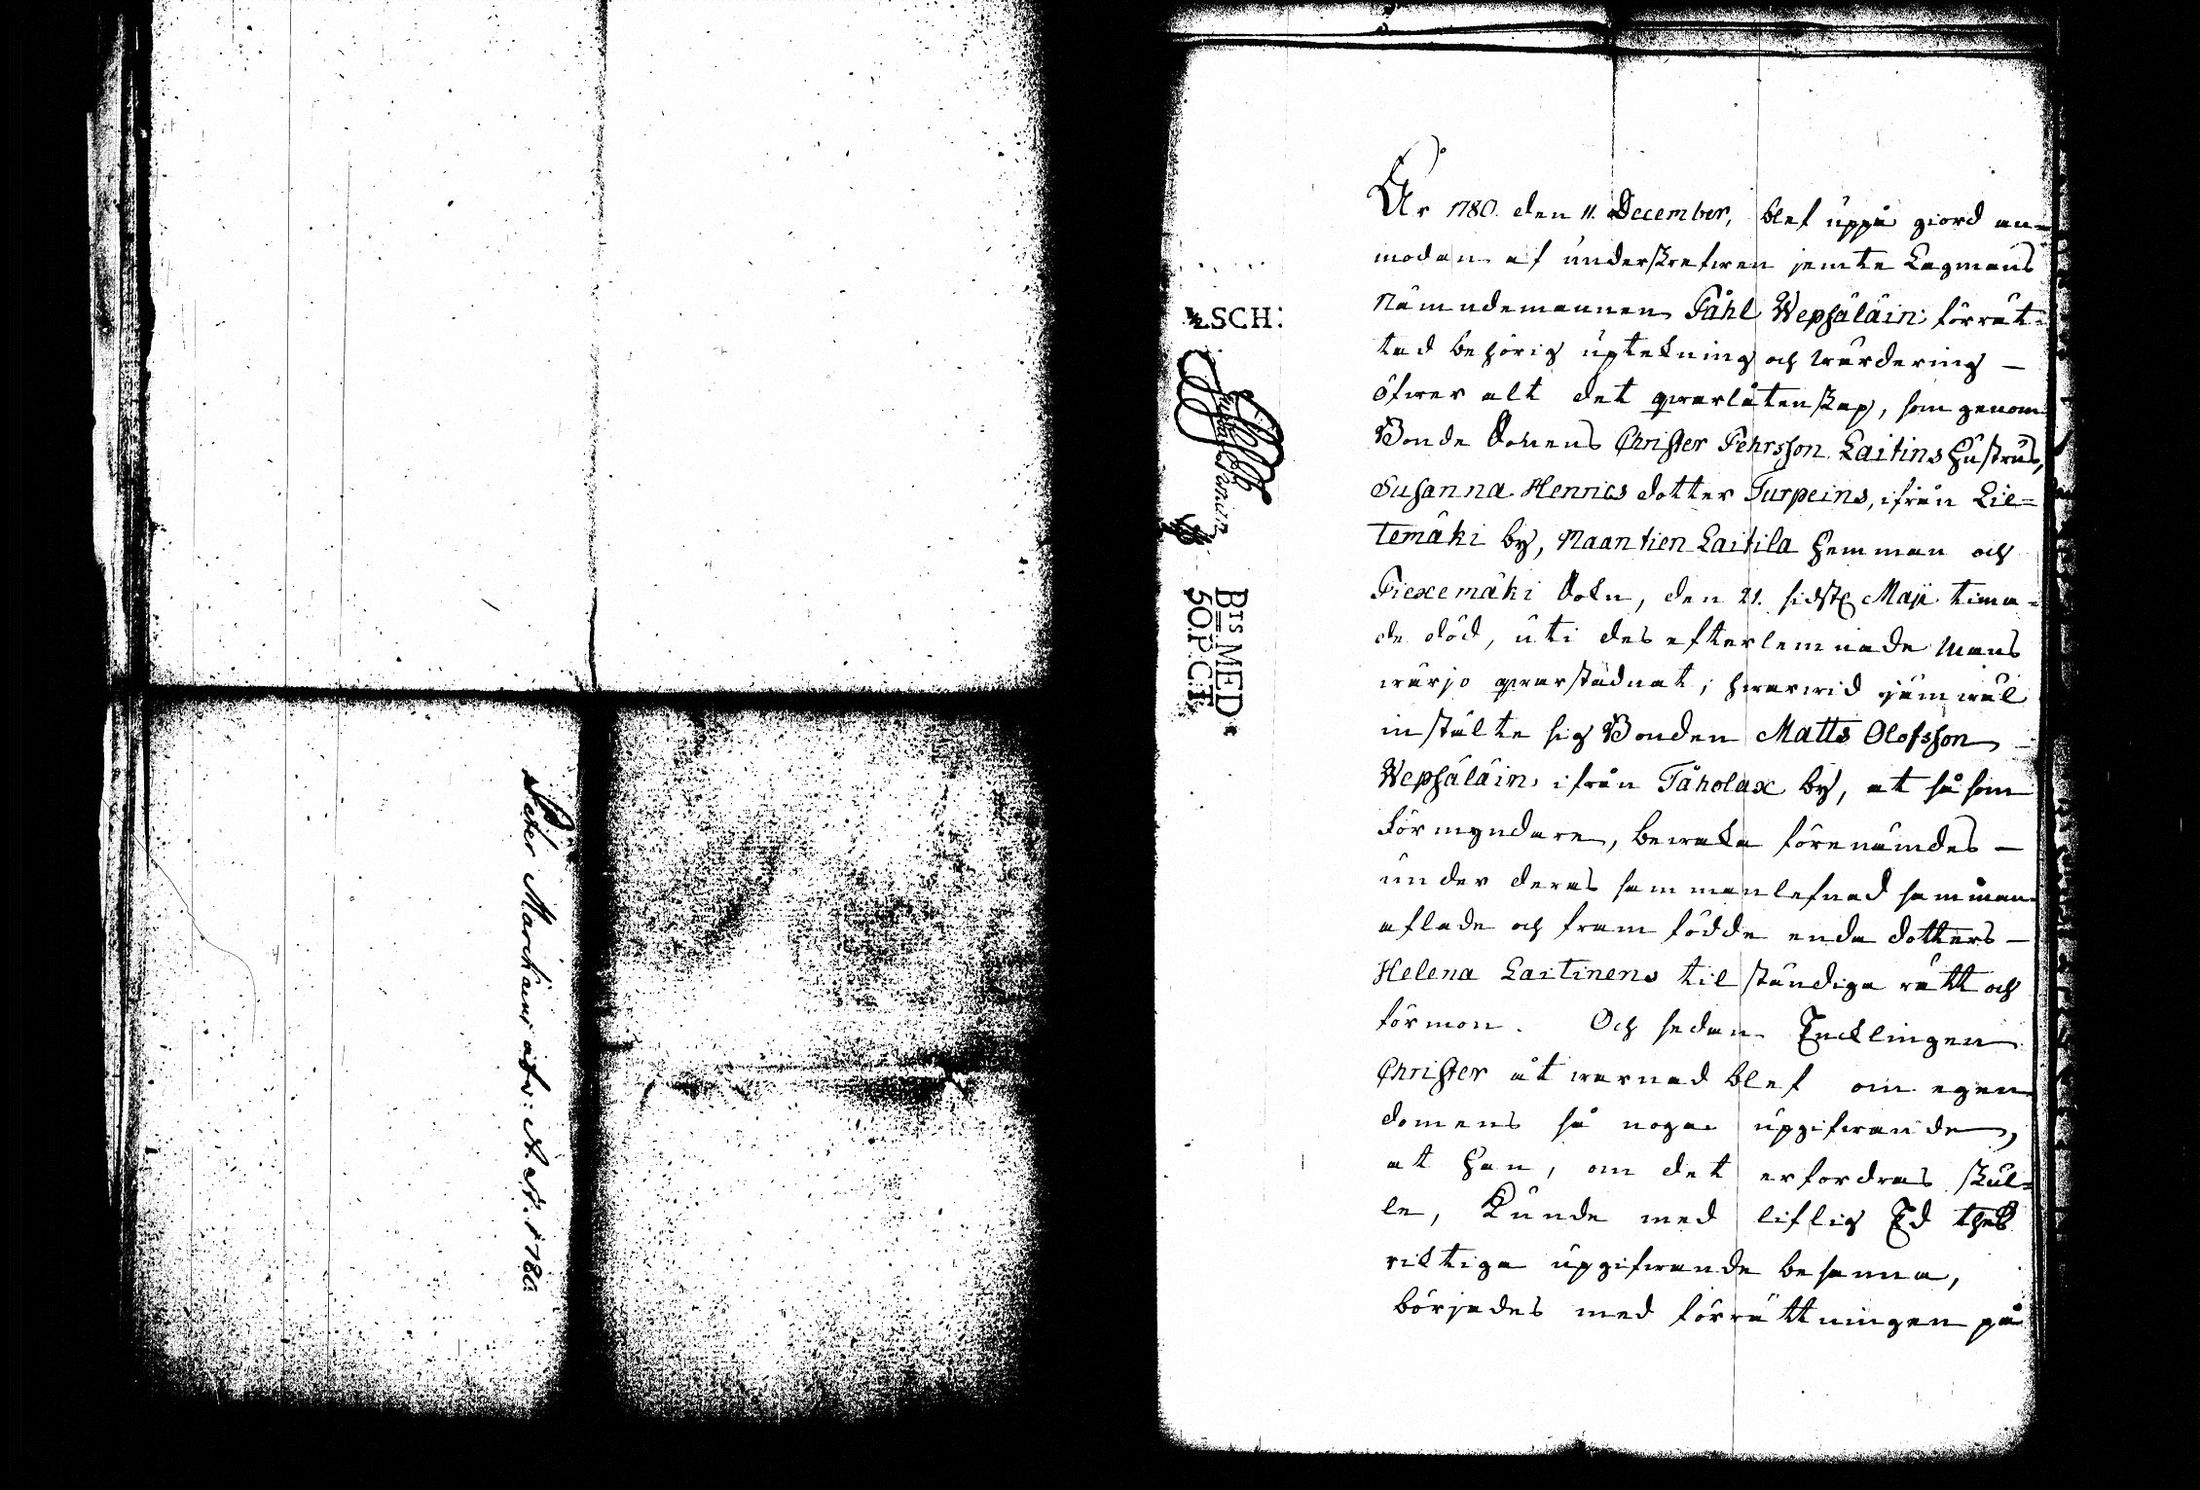 Peter Marckain afv: A. N. 1780.
½ SCH:
BTS MED
50.P:C:T.
År 1780. den 11. December, blef uppå giord an-
modan af underskrefwen jemte Lagmans
Nämndemannen Påhl Wepsäläin förrät-
tad behörig upteknings och wärdering —
öfwer alt det qwarlåtenskap, som genom
Bonde Sonens Christer Pehrsson Laitins hustrus,
Susanna Henrics dotter Turpeins, ifrån Lie=
temäki by, Naantien Laitila hemman och
Piexemäki Sokn, den 21. sidste Maji tima-
de död, uti des efterlemnade Mans
wärjo qwarstadnat; hwarwid jämwäl
instälte sig Bonden Matts Olofsson
Wepsäläin ifrån Täholax by, at såsom
förmyndare, bewaka förenämdes —
under deras sammanlefnad samman
aflade och framfödde enda dotters —
Helena Laitinens tilständiga rätt och
förmon. Och sedan Encklingen
Christer åtwarnad blef om egen
domens så noga uppgifwande,
at han, om det erfordras skul=
le, kunde med liflig Ed thes
riktiga upgifwande besanna,
börjades med förrättningen på